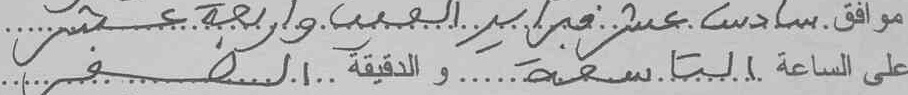 موافق سادس عشر فبراير الفين وأربعة عشر
على الساعة التاسعة و الدقيقة الصفر